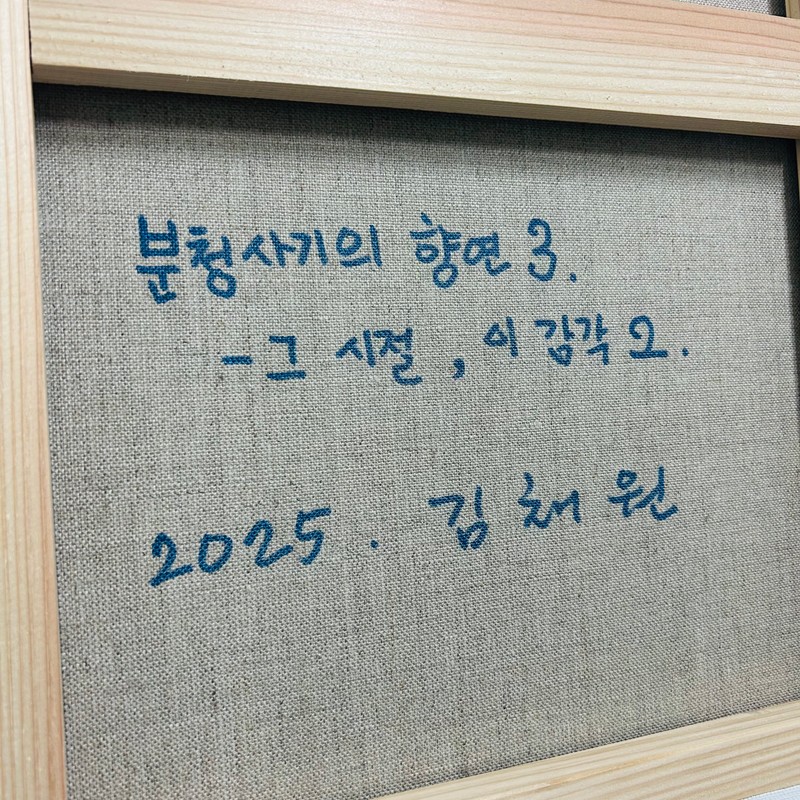 분청사기의 향연 3.
- 그 시절, 이 감각 2.
2025. 김채원